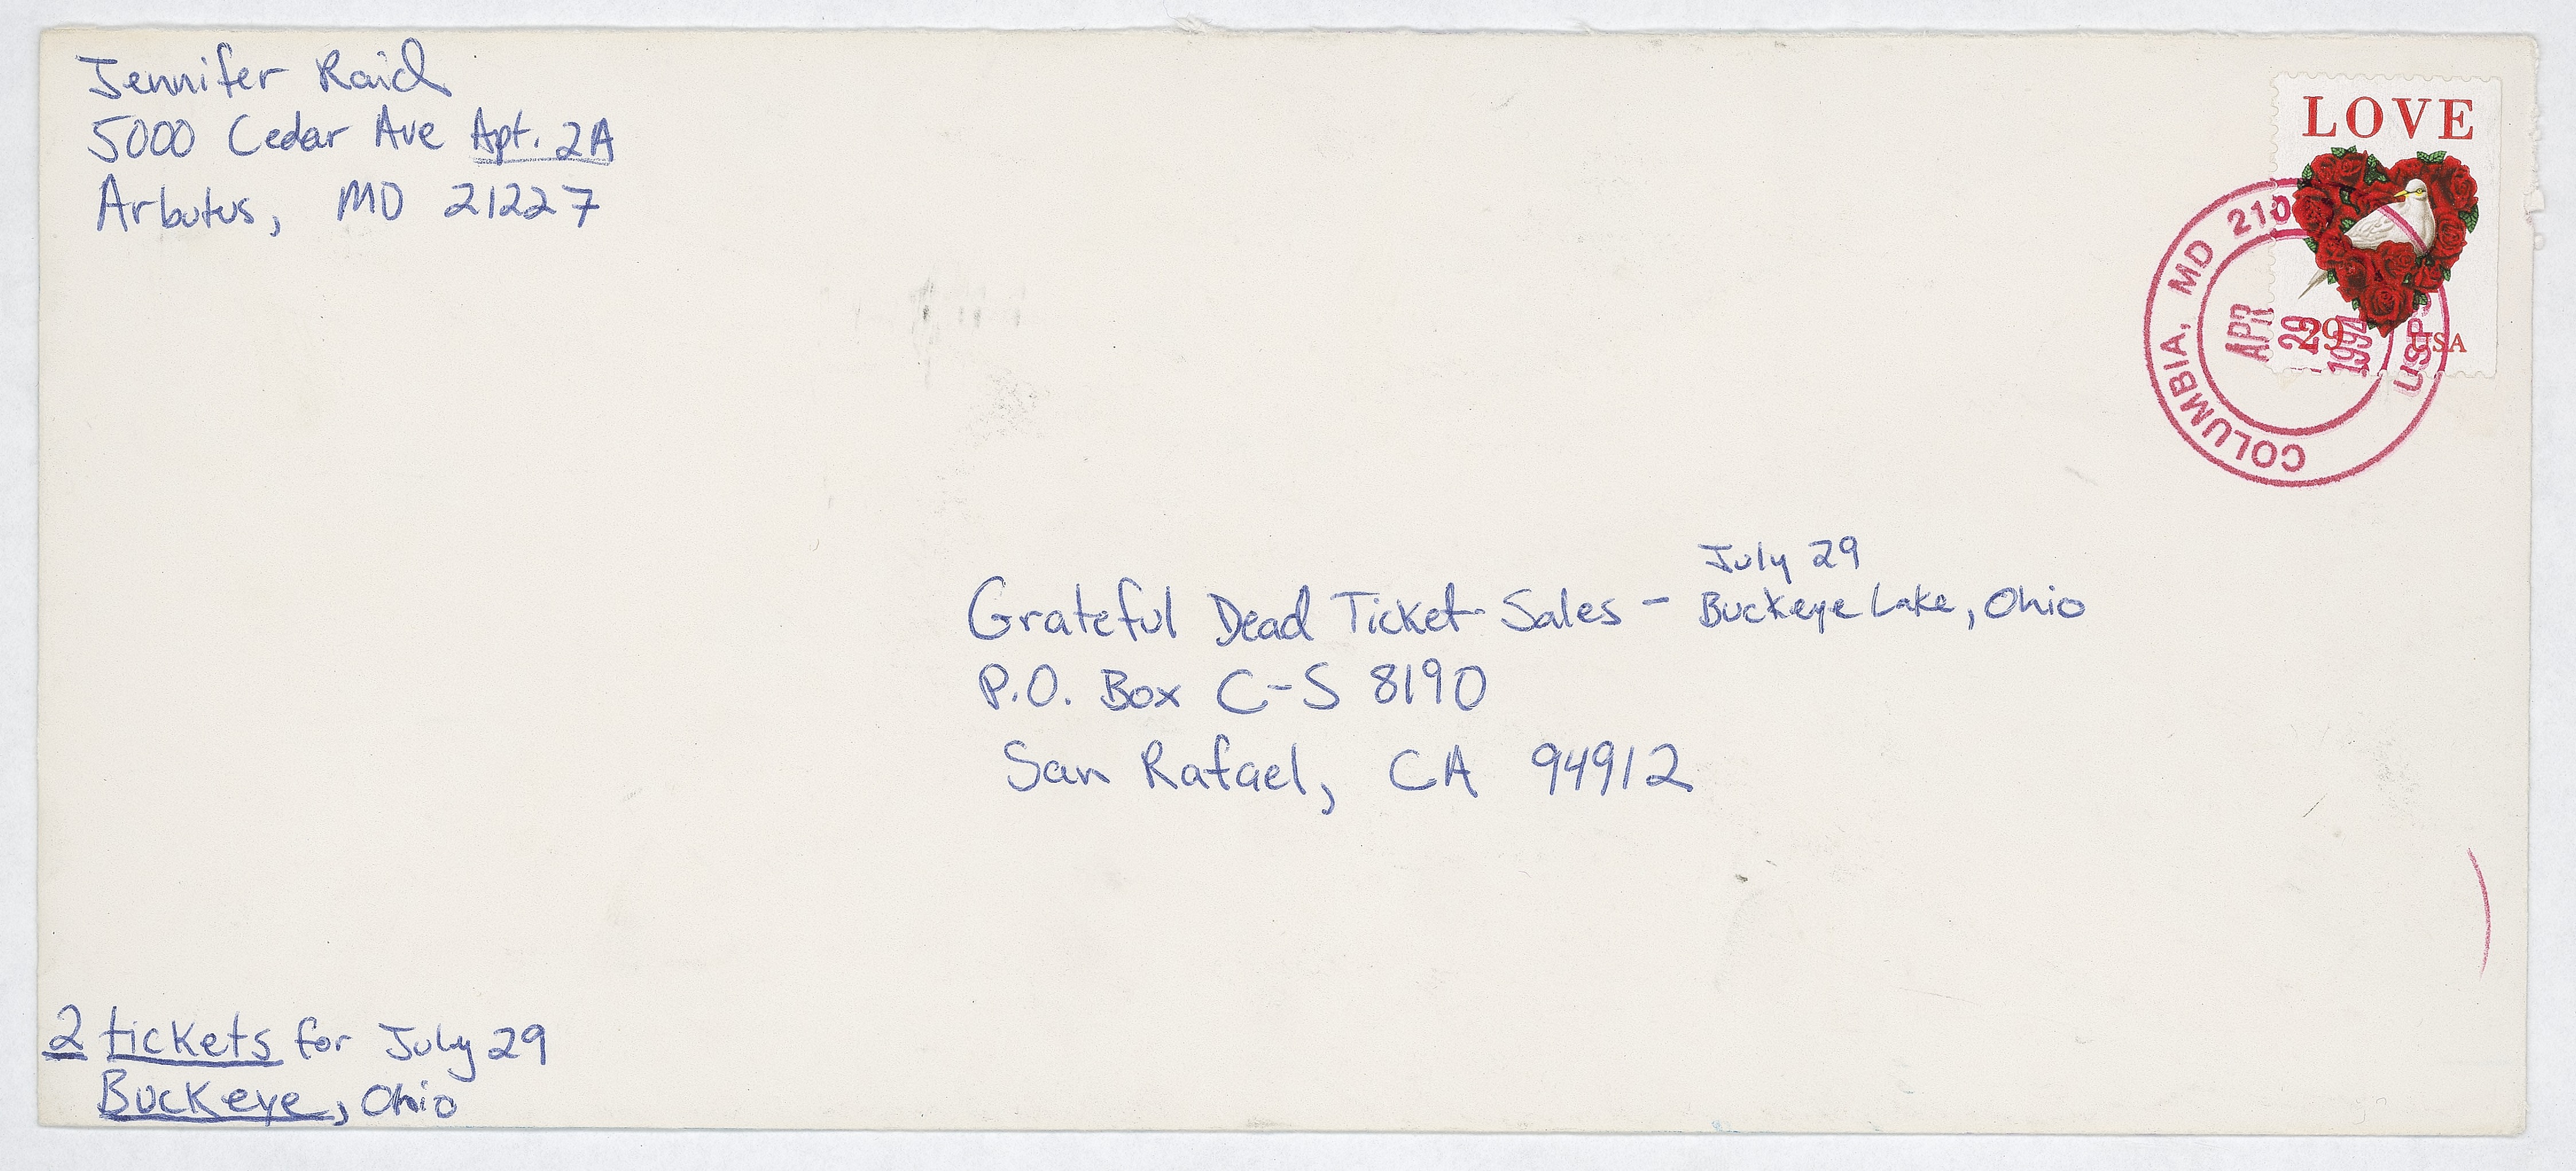 Jennifer Raid
5000 Cedar Ave Apt. 2A
Arbutus, MD 21227
LOVE
29 USA
COLUMBIA, MD 210
USPS
APR
29
1994
July 29
Grateful Dead Ticket Sales - Buckeye Lake, Ohio
P.O. Box C-S 8190
San Rafael, CA 94912
2 tickets for July 29
Buckeye, Ohio